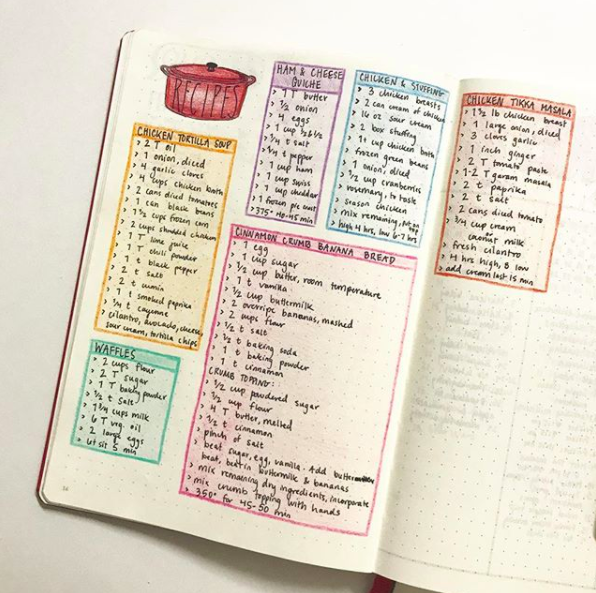 RECIPES
CHICKEN TORTILLA SOUP
> 2 T oil
> 1 onion, diced
> 4 garlic cloves
> 4 cups chicken broth
> 2 cans diced tomatoes
> 1 can black beans
> 1 1/2 cups frozen corn
> 2 cups shredded chicken
> 1 T lime juice
> 1 t chili powder
> 1 t black pepper
> 2 t salt
> 2 t cumin
> 1 t smoked paprika
> 3/4 t cayenne
> cilantro, avocado, cheese,
sour cream, tortilla chips
WAFFLES
> 2 cups flour
> 2 T sugar
> 1 T baking powder
> 1/2 t salt
> 1 3/4 cups milk
> 6 T veg. oil
> 2 large eggs
> let sit 5 min
HAM & CHEESE
QUICHE
> 1 T butter
> 1/2 onion
> 4 eggs
> 1 cup 1/2 & 1/2
> 3/4 t salt
> 1/4 t pepper
> 1 cup ham
> 1 cup swiss
> 1 cup cheddar
> 1 frozen pie crust
> 375° 40-45 min
CHICKEN & STUFFING
> 3 chicken breasts
> 2 can cream of chicken
> 16 oz sour cream
> 2 box stuffing
> 1+ cup chicken broth
> frozen green beans
> 1 onion, diced
> 1/2 cup cranberries
> rosemary, to taste
> season chicken
> mix remaining, put on top
> high 4 hrs, low 6-7 hrs
CINNAMON CRUMB BANANA BREAD
> 1 egg
> 1 cup sugar
> 1/2 cup butter, room temperature
> 1 t vanilla
> 1/2 cup buttermilk
> 2 overripe bananas, mashed
> 2 cups flour
> 1/2 t salt
> 1/2 t baking soda
> 1 t baking powder
> 1 t cinnamon
CRUMB TOPPING:
> 1/2 cup powdered sugar
> 1/2 cup flour
> 4 T butter, melted
> 1/2 t cinnamon
> pinch of salt
> beat sugar, egg, vanilla. Add butter
beat, beat in buttermilk & bananas
> mix remaining dry ingredients, incorporate
> mix crumb topping with hands
> 350° for 45-50 min
CHICKEN TIKKA MASALA
> 1 1/2 lb chicken breast
> 1 large onion, diced
> 3 cloves garlic
> 1 inch ginger
> 2 T tomato paste
> 1-2 T garam masala
> 2 t paprika
> 2 t salt
> 2 cans diced tomato
> 3/4 cup cream
coconut milk
> fresh cilantro
> 4 hrs high, 8 low
> add cream last 15 min